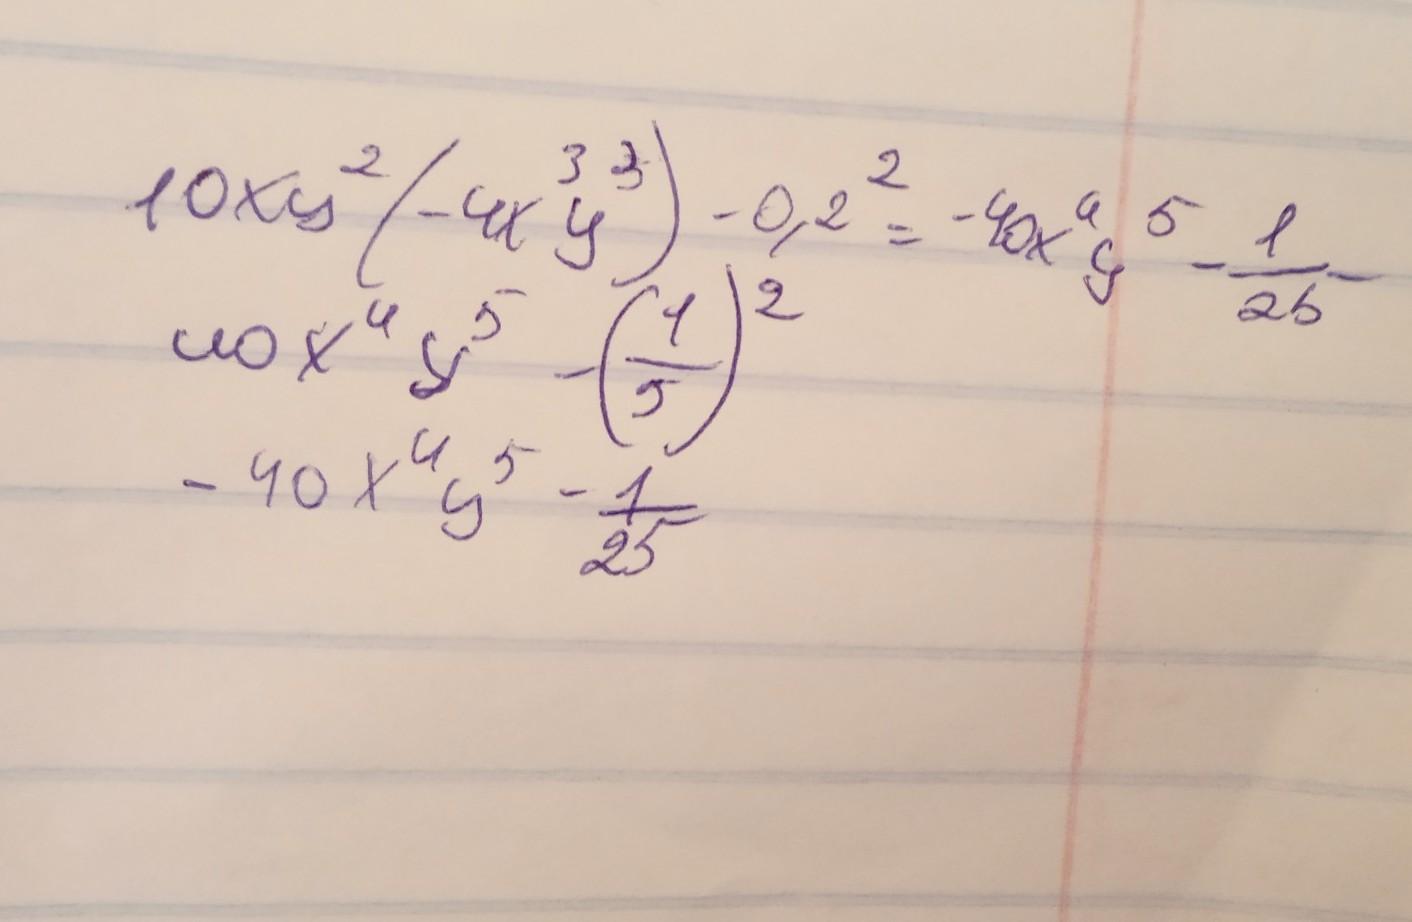 10xy²(-4x³y³) - 0,2² = -40x⁴y⁵ - 1/25
40x⁴y⁵ - (1/5)²
-40x⁴y⁵ - 1/25